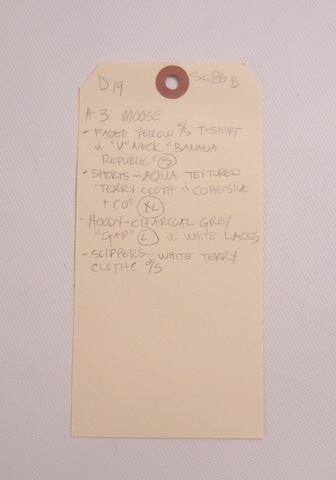 D19 SC86B
#3 MOOSE
- FADED YELLOW S/S T-SHIRT
W "V" NECK "BANANA
REPUBLIC" S
- SHORTS - AQUA TEXTURED
TERRY CLOTH "COHESIVE
+ CO" XL
- HOODY - CHARCOAL GREY
"GAP" L W WHITE LACES
- SLIPPERS - WHITE TERRY
CLOTHE O/S